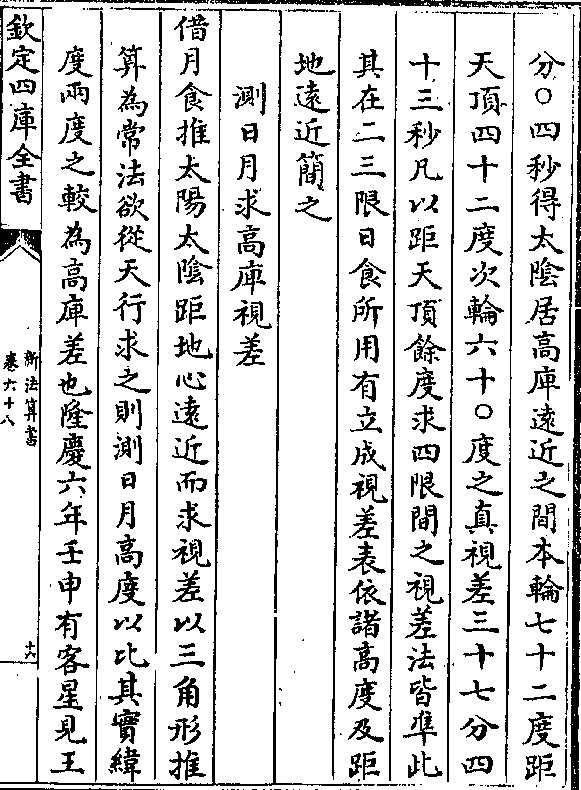 分○四秒得太陰居高庳遠近之間本輪七十二度距
天頂四十二度次輪六十○度之真視差三十七分四
十三秒凡以距天頂餘度求四限間之視差法皆準此
其在二三限日食所用有立成視差表依諸高度及距
地遠近簡之
測日月求高庳視差
借月食推太陽太陰距地心遠近而求視差以三角形推
算為常法欲從天行求之則測日月高度以比其實緯
度兩度之較為高庳差也隆慶六年壬申有客星見王
欽定四庫全書
新法算書
卷六十八
十六